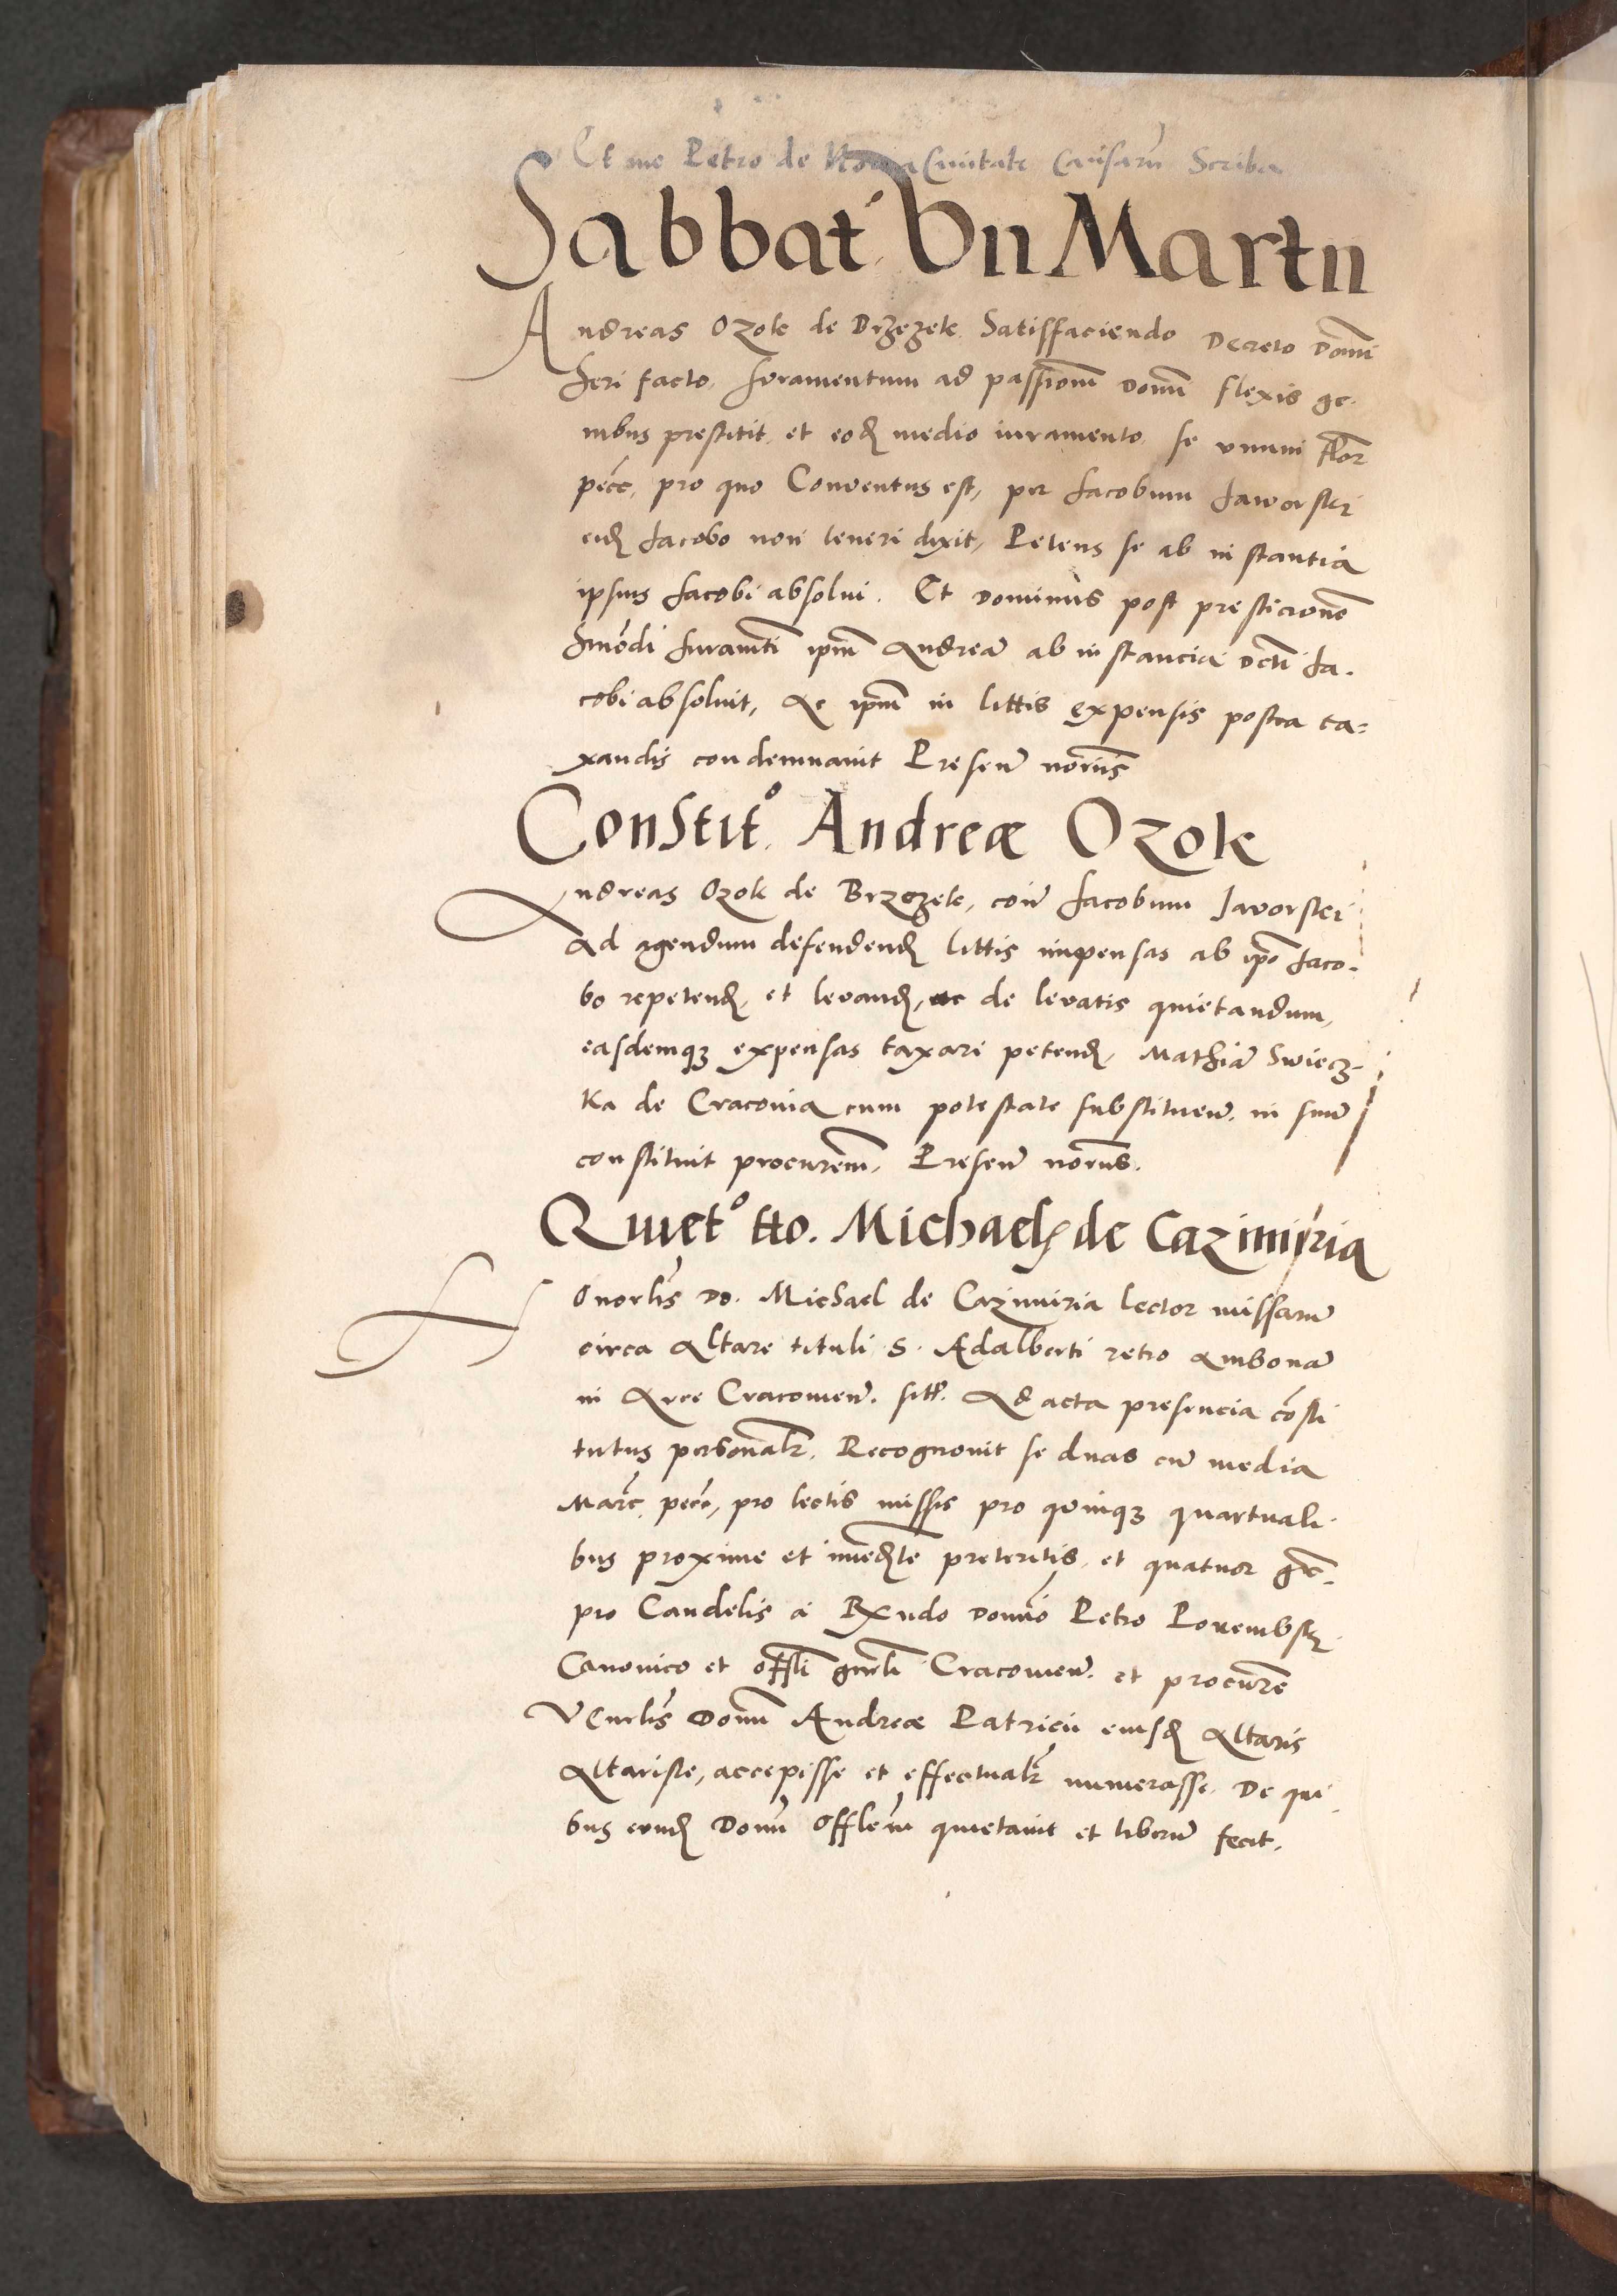 Et me Petro de Nova Civitate Causarū Scriba
Sabbat. VII Martii
Andreas Ozok de Brzezek Satisfaciendo Decreto Domī
heri facto, Iuramentum ad passionē Domī flexis ge-
nibus prestitit, et eodē medio iuramento, se unum flor
pecc, pro quo Conventus est, per Iacobum Iaworski
eidē Iacobo non teneri dixit, Petens se ab instantia
ipsius Iacobi absolvi. Et Dominus post presticionē
hmōdi Iuramēti ipm̄ Andreā ab instancia dcti Ia-
cobi absolvit, Ac ipm̄ in littis expensis postea ta-
xandis condemnavit Presen̄ noriis
Constit⁰. Andreæ Ozok
Andreas Ozok de Brzezek, con̄ Iacobum Jaworski
Ad agendum defendendū littis impensas ab ipō Iaco-
bo repetendū, et levandū, ac de levatis quietandum,
easdemqȝ expensas taxari petendū, Mathiā Swiecz-
ka de Cracovia cum potestate substituen̄. in suū
constituit procurem̄, Presen̄ noriis.
Quiet⁰ tto. Michaelis de Cazimiria
Honorlis Do. Michael de Cazimiria lector missarū
circa Altare tituli S. Adalberti retro Ambonā
in Arce Cracovien̄. sitū. Ad acta presencia cōsti
tutus personalr̄, Recognovit se duas cū media
Marc̄. pecc̄, pro lectis missis pro quinqȝ quartuali-
bus proxime et immedte preteritis, et quatuor gr̄.
pro Candelis a Rndo Domīo Petro Porembsky
Canonico et offli gnrli Cracovien̄. et procurē
Venrlis Domī Andreæ Patricii eiusdē Altaris
Altariste, accepisse et effectualr̄ numerasse. De qui
bus eundē Domī Offlem quietavit et liberū fecit.